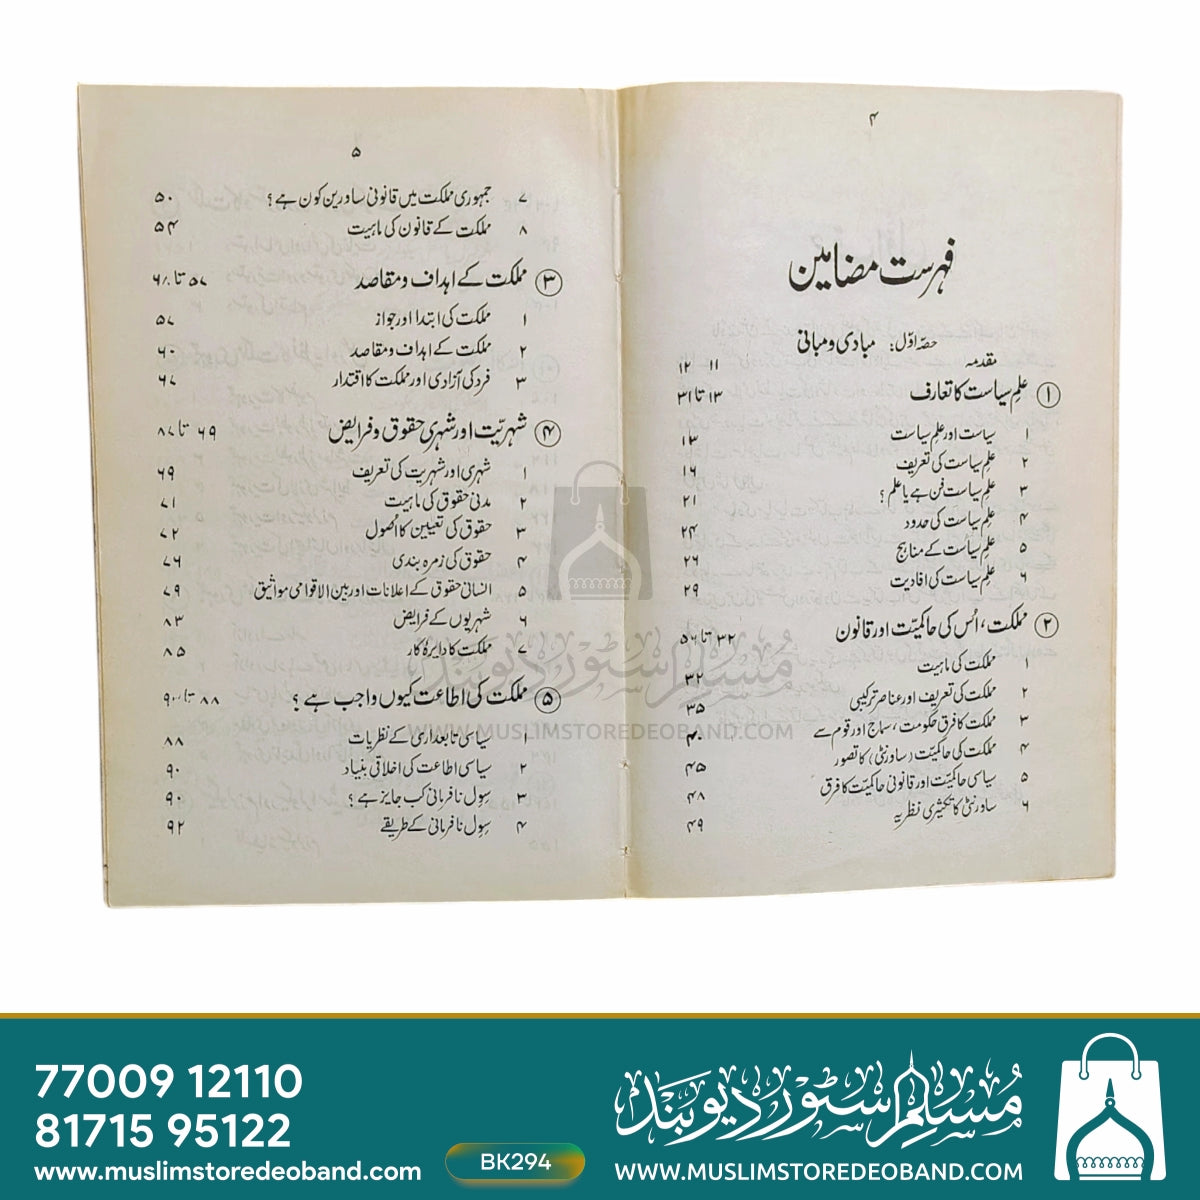 ۴
فہرست مضامین
حصّہ اوّل: مبادی و مبانی
مقدمہ ۱۱ ۱۲
۱ علمِ سیاست کا تعارف ۱۳ تا ۳۱
۱ سیاست اور علمِ سیاست ۱۳
۲ علمِ سیاست کی تعریف ۱۶
۳ علمِ سیاست فن ہے یا علم؟ ۲۱
۴ علمِ سیاست کی حدود ۲۴
۵ علمِ سیاست کے مناہج ۲۶
۶ علمِ سیاست کی افادیت ۲۹
۲ مملکت، اُس کی حاکمیّت اور قانون ۳۲ تا ۵۶
۱ مملکت کی ماہیت ۳۲
۲ مملکت کی تعریف اور عناصر ترکیبی ۳۵
۳ مملکت کا فرق حکومت، سماج اور قوم سے ۴۰
۴ مملکت کی حاکمیّت (ساورنٹی) کا تصور ۴۵
۵ سیاسی حاکمیّت اور قانونی حاکمیّت کا فرق ۴۸
۶ ساورنٹی کا تکثیری نظریہ ۴۹
۵
۷ جمہوری مملکت میں قانونی ساورین کون ہے؟ ۵۰
۸ مملکت کے قانون کی ماہیت ۵۴
۳ مملکت کے اہداف و مقاصد ۵۷ تا ۶۸
۱ مملکت کی ابتدا اور جواز ۵۷
۲ مملکت کے اہداف و مقاصد ۶۰
۳ فرد کی آزادی اور مملکت کا اقتدار ۶۷
۴ شہریّت اور شہری حقوق و فرایض ۶۹ تا ۸۷
۱ شہری اور شہریت کی تعریف ۶۹
۲ مدنی حقوق کی ماہیت ۷۱
۳ حقوق کی تعیین کا اُصول ۷۲
۴ حقوق کی زمرہ بندی ۷۶
۵ انسانی حقوق کے اعلانات اور بین الاقوامی مواثیق ۷۹
۶ شہریوں کے فرایض ۸۳
۷ مملکت کا دایرۂ کار ۸۵
۵ مملکت کی اطاعت کیوں واجب ہے؟ ۸۸ تا
۱ سیاسی تابعداری کے نظریات ۸۸
۲ سیاسی اطاعت کی اخلاقی بنیاد ۹۰
۳ سِول نافرمانی کب جایز ہے؟ ۹۰
۴ سِول نافرمانی کے طریقے ۹۲
مُسلم سٹور دیوبند
WWW.MUSLIMSTOREDEOBAND.COM
77009 12110
81715 95122
www.muslimstoredeoband.com
BK294
مُسلم سٹور دیوبند
WWW.MUSLIMSTOREDEOBAND.COM